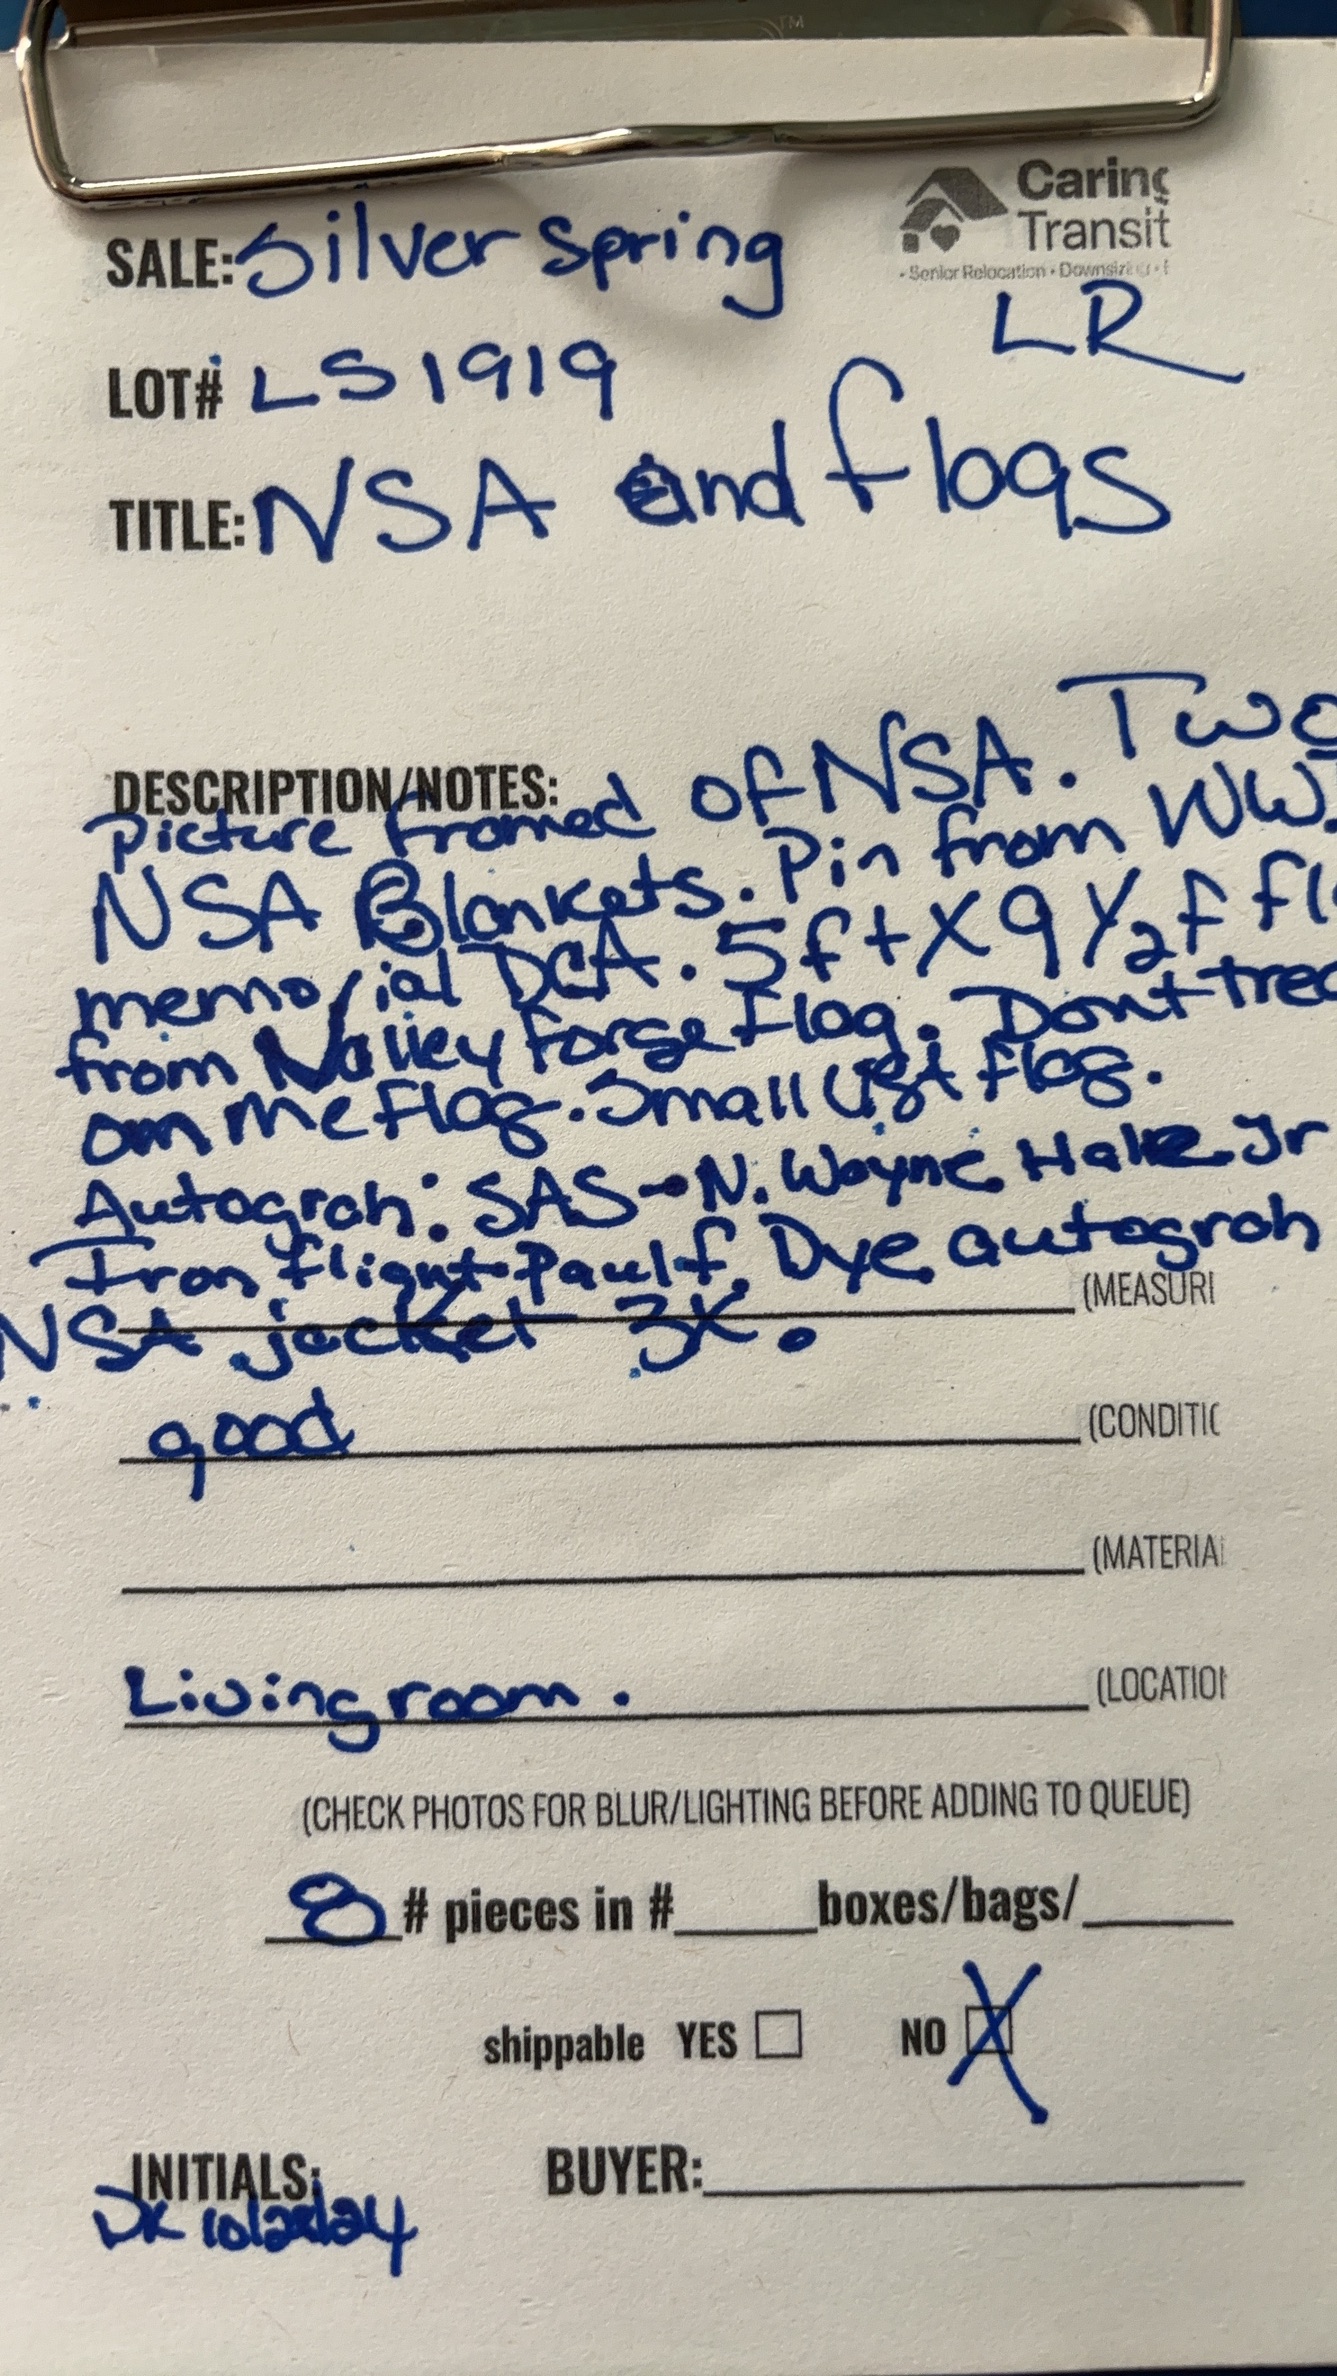 TM
Caring
Transit
• Senior Relocation • Downsizing •
SALE: Silver Spring
LR
LOT# LS1919
TITLE: NSA and flags
DESCRIPTION/NOTES:
Picture framed of NSA. Two
NSA Blankets. Pin from WW
memorial DCA. 5ft X 9 1/2 f fl
from Valley forge Flag. Dont tread
om me Flag. Small flag.
Autograh: SAS - N. Wayne Hale Jr
Iron flight Paul f. Dye autograh
(MEASURI
NSA jacket 3X.
good (CONDITIC
(MATERIAL
Livingroom. (LOCATION
(CHECK PHOTOS FOR BLUR/LIGHTING BEFORE ADDING TO QUEUE)
8 # pieces in #_____boxes/bags/_____
shippable YES ☐ NO ☒
INITIALS: BUYER:
DK 10/28/24